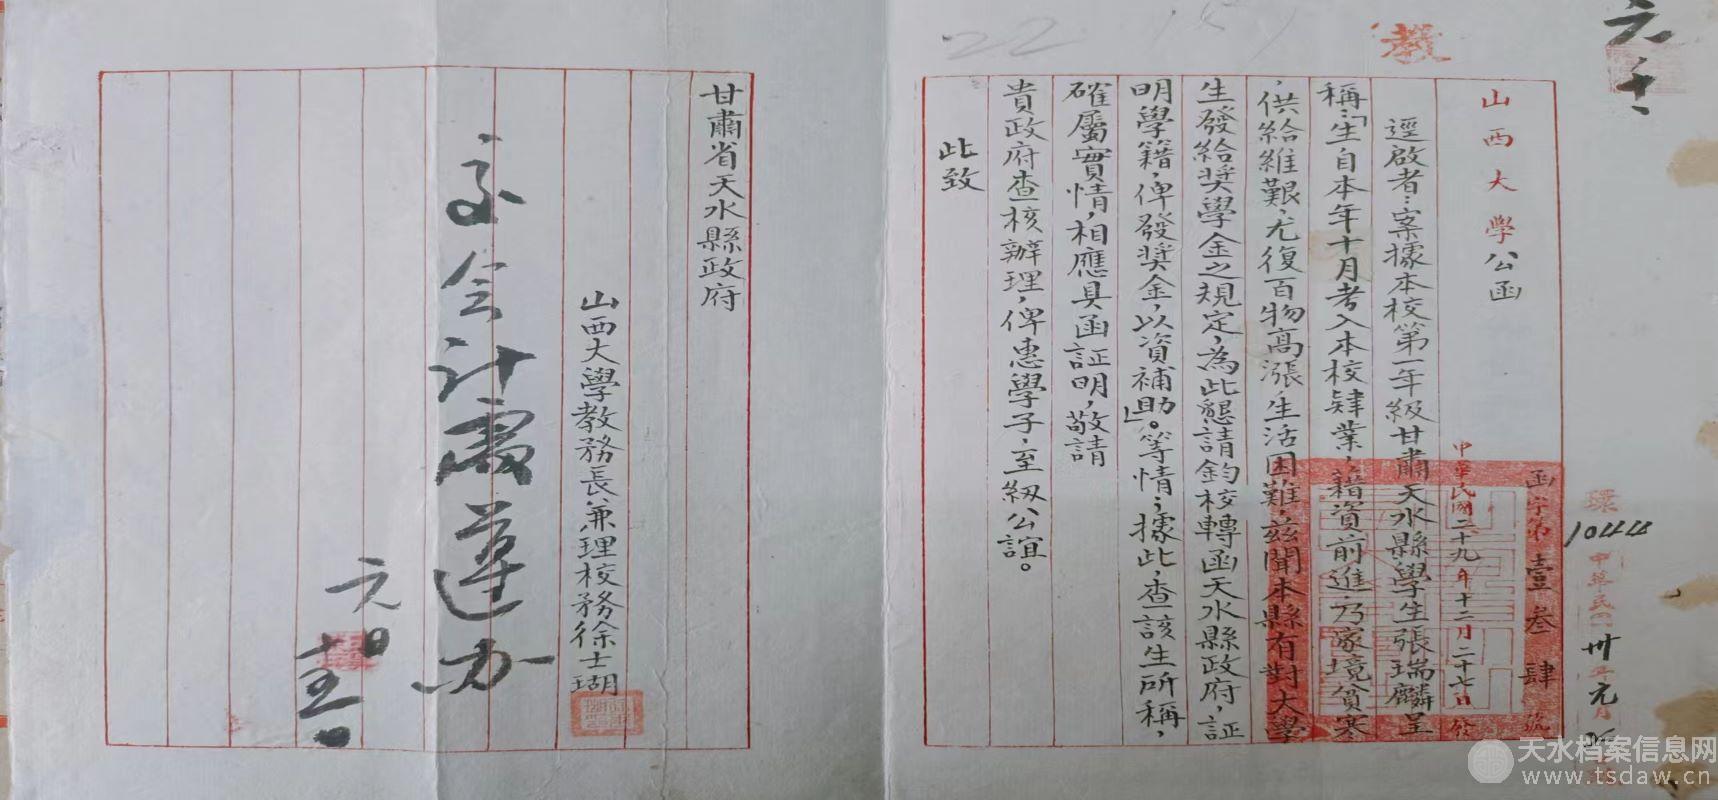 22
教
元
山西大學公函
函字第壹叁肆號
中華民國二十九年十二月二十七日發
1044
中華民國卅年元月
逕啟者:案據本校第一年級甘肅天水縣學生張瑞麟呈
稱:「生自本年十月考入本校肄業,藉資前進,乃家境貧寒
,供給維艱,尤復百物高漲,生活困難,茲聞本縣有對大學
生發給奬學金之規定,為此懇請鈞校轉函天水縣政府,証
明學籍,俾發奬金,以資補助」。等情;據此,查該生所稱,
確屬實情,相應具函証明,敬請
貴政府查核辦理,俾惠學子,至紉公誼。
此致
甘肅省天水縣政府
山西大學教務長兼理校務徐士瑚
交会计處遵办
元
天水档案信息网
www.tsdaw.cn